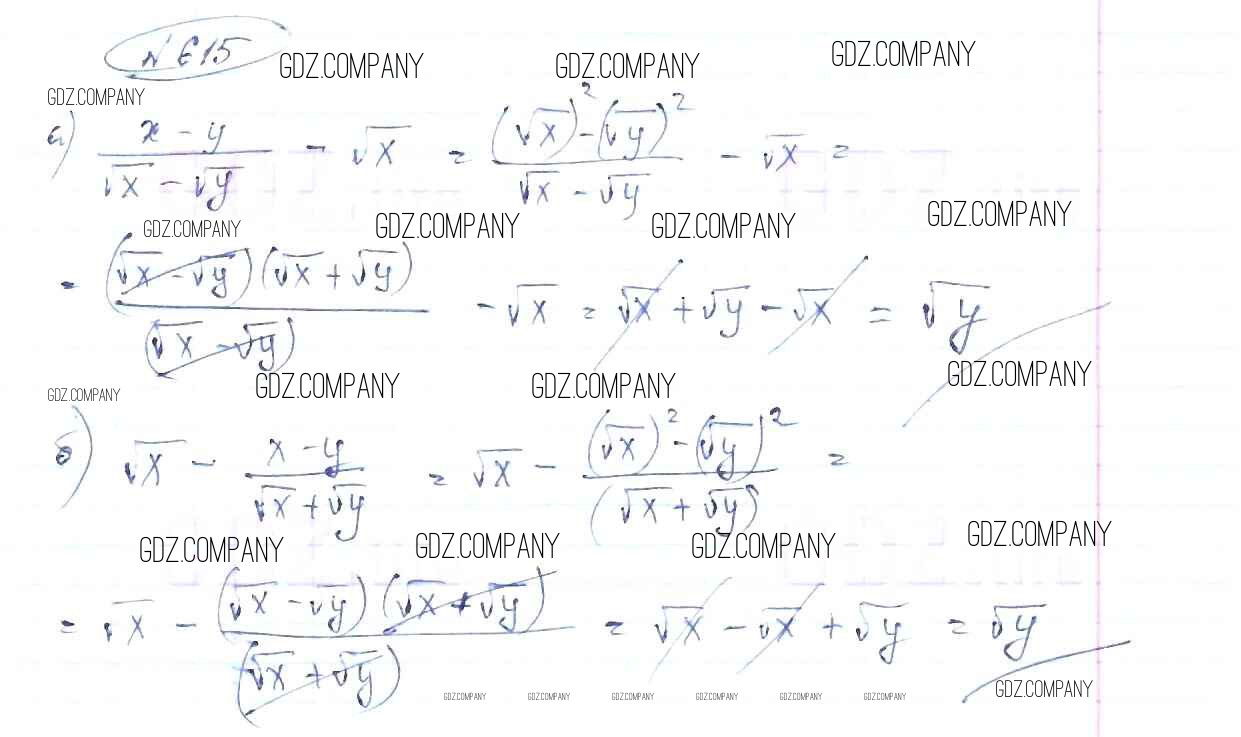 № 615
GDZ.COMPANY GDZ.COMPANY GDZ.COMPANY
GDZ.COMPANY
а) (x - y)/(√x - √y) - √x = ((√x)² - (√y)²)/(√x - √y) - √x =
GDZ.COMPANY GDZ.COMPANY GDZ.COMPANY GDZ.COMPANY
= ((√x - √y)(√x + √y))/((√x - √y)) - √x = √x + √y - √x = √y
GDZ.COMPANY GDZ.COMPANY GDZ.COMPANY GDZ.COMPANY
б) √x - (x - y)/(√x + √y) = √x - ((√x)² - (√y)²)/((√x + √y)) =
GDZ.COMPANY GDZ.COMPANY GDZ.COMPANY GDZ.COMPANY
= √x - ((√x - √y)(√x + √y))/((√x + √y)) = √x - √x + √y = √y
GDZ.COMPANY GDZ.COMPANY GDZ.COMPANY GDZ.COMPANY GDZ.COMPANY GDZ.COMPANY GDZ.COMPANY